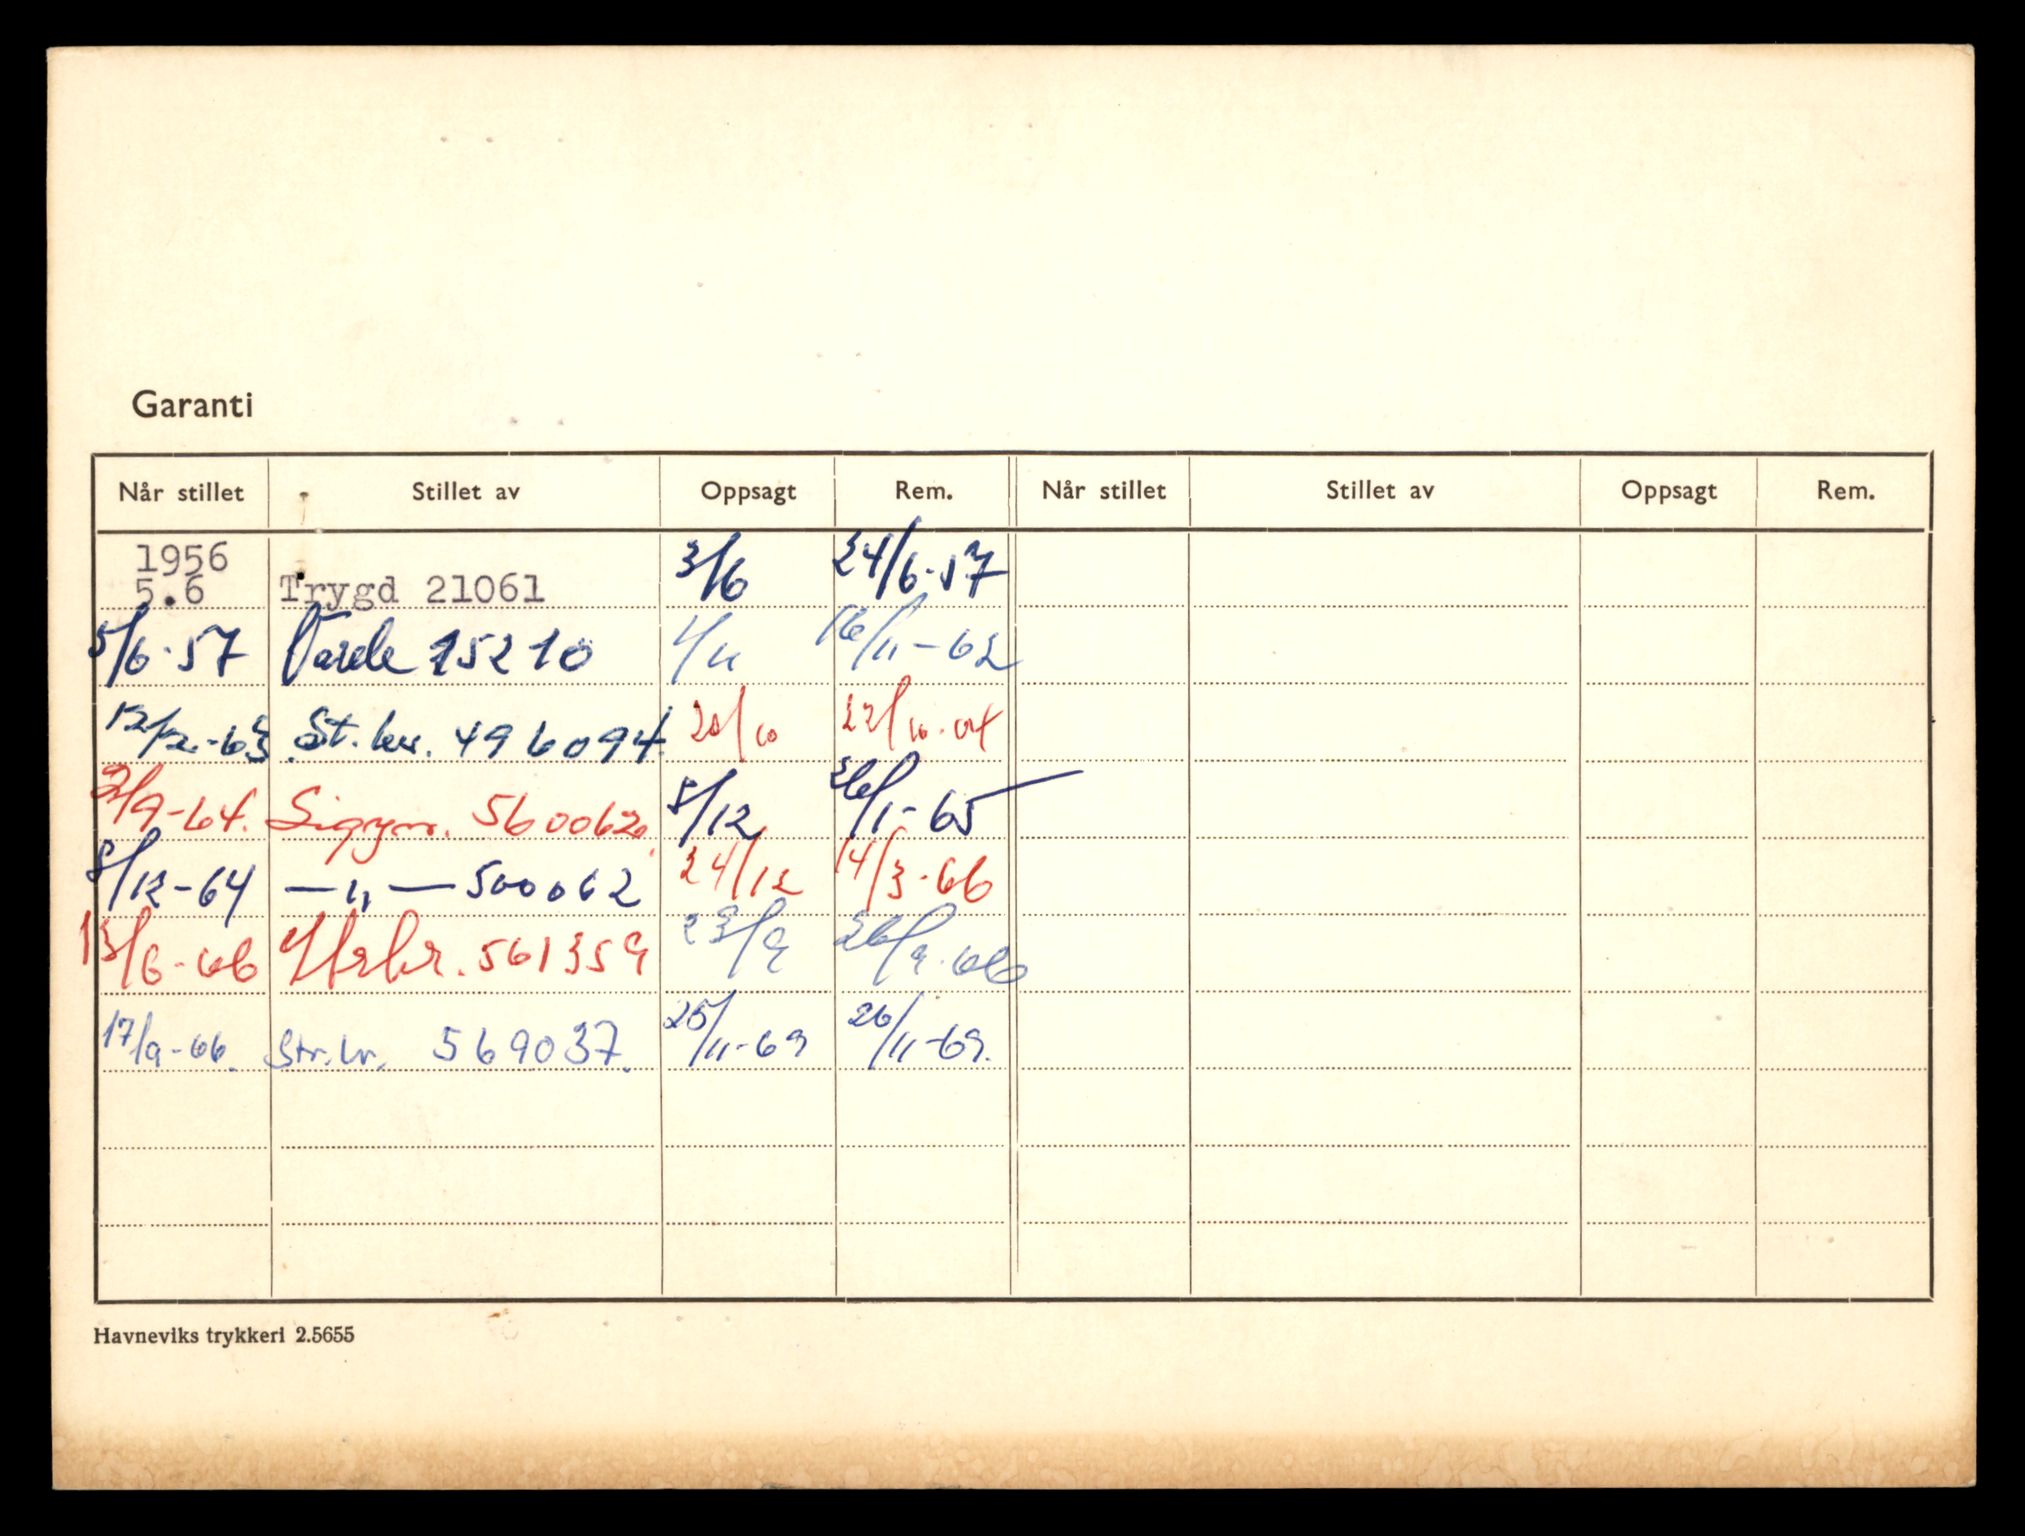 Garanti
Når stillet Stillet av Oppsagt Rem. Når stillet Stillet av Oppsagt Rem.
1956
5.6 Trygd 21061 3/6 24/6-57
5/6-57 Varde 15210 16/11-62
12/2-63 St. br. 496094. 20/10 22/10-64
2/9-64. Sigyn. 560062. 8/12 26/1-65
8/12-64 — " — 500062 24/12 14/3-66
13/6-66 561359 23/9 26/9-66
17/9-66. Str.br. 569037. 25/11-69 26/11-69.
Havneviks trykkeri 2.5655